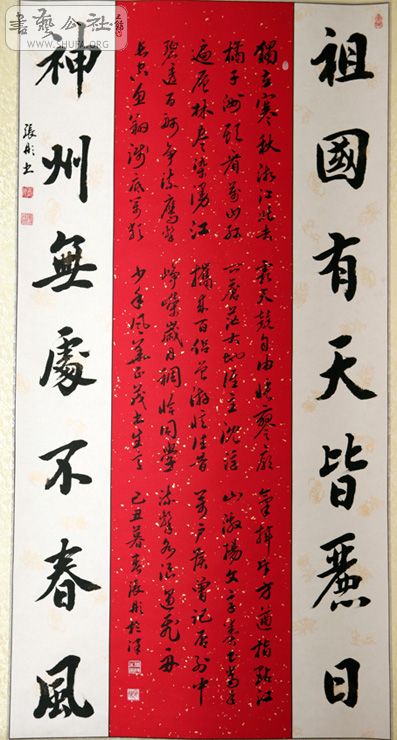 祖國有天皆麗日
獨立寒秋湘江北去
橘子洲頭看萬山紅
遍層林盡染漫江
碧透百舸爭流鷹擊
長空魚翔淺底萬類
霜天競自由悵寥廓
問蒼茫大地誰主沈浮
攜來百侶曾遊憶往昔
崢嶸歲月稠恰同學
少年風華正茂書生意
氣揮斥方遒指點江
山激揚文字糞土當年
萬戶侯曾記否到中
流擊水浪遏飛舟
己丑暮春張彤於津
神州無處不春風
張彤書
書藝公社
WWW.SHUFA.ORG